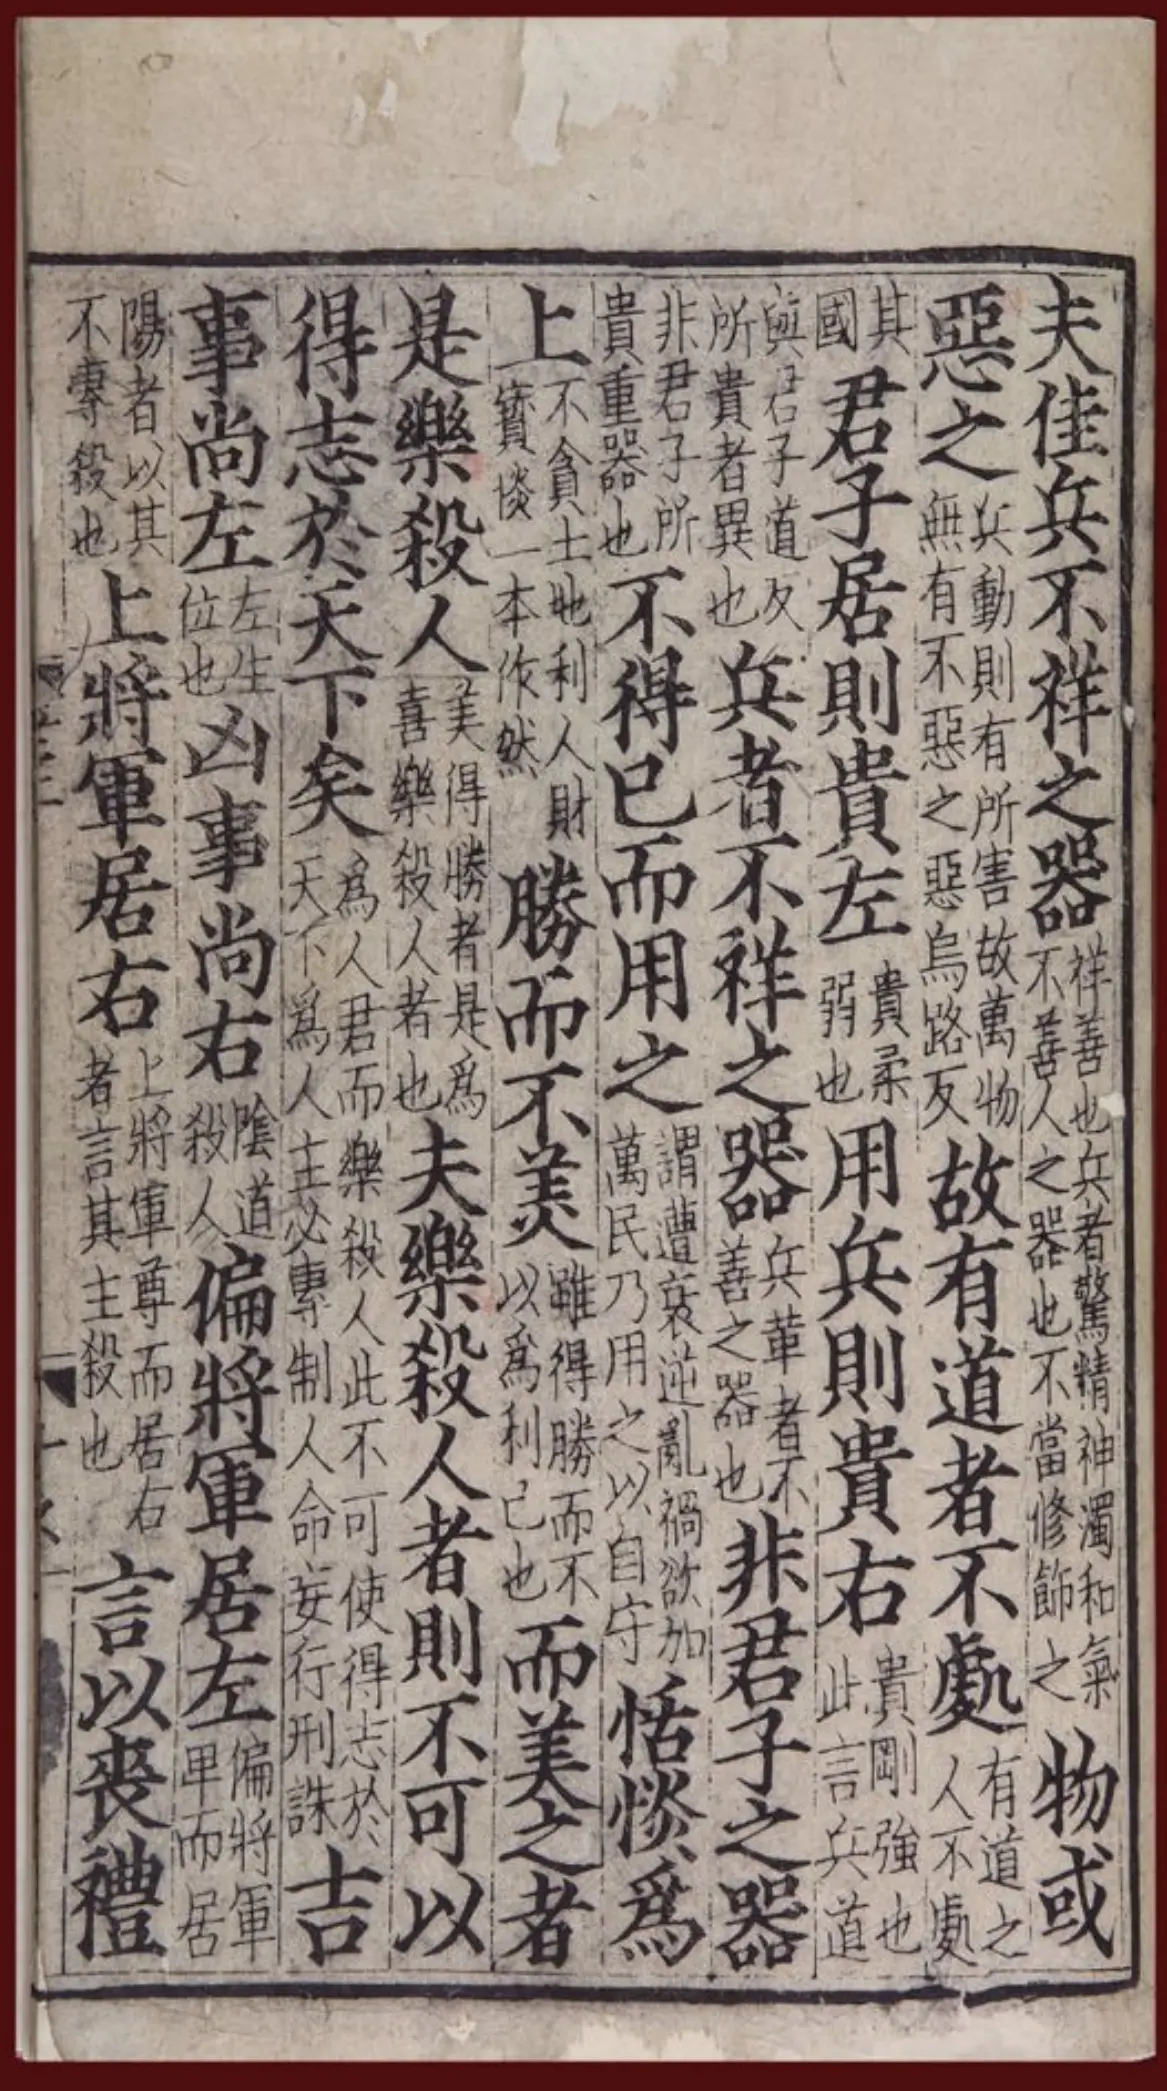 夫佳兵不祥之器祥善也兵者驚精神濁和氣不善人之器也不當修飾之物或
惡之兵動則有所害故萬物無有不惡之惡烏路反故有道者不處有道之人不處
其國君子居則貴左貴柔弱也用兵則貴右貴剛強也此言兵道
與君子道反所貴者異也兵者不祥之器兵革者不善之器也非君子之器
非君子所貴重器也不得已而用之謂遭衰逆亂禍欲加萬民乃用之以自守恬惔爲
上不貪土地利人財寶惔一本作然勝而不美雖得勝而不以爲利己也而美之者
是樂殺人美得勝者是爲喜樂殺人者也夫樂殺人者則不可以
得志於天下矣爲人君而樂殺人此不可使得志於天下爲人主必專制人命妄行刑誅吉
事尚左左生位也凶事尚右陰道殺人偏將軍居左偏將軍卑而居
陽者以其不專殺也上將軍居右上將軍尊而居右者言其主殺也言以喪禮